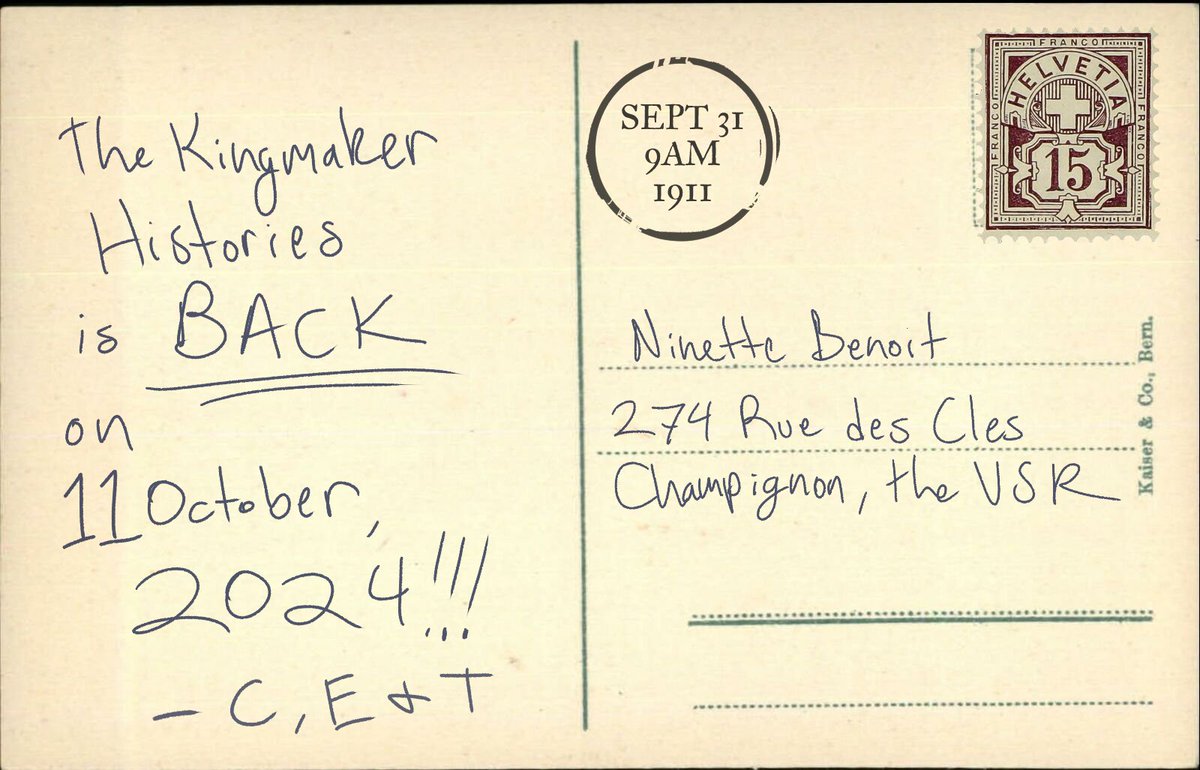 The Kingmaker
Histories
is BACK
on
11 October,
2024!!!
- C, E & T
SEPT 31
9AM
1911
FRANCO
FRANCO
FRANCO
HELVETIA
15
Ninette Benoit
274 Rue des Cles
Champignon, the VSR
Kaiser & Co., Bern.